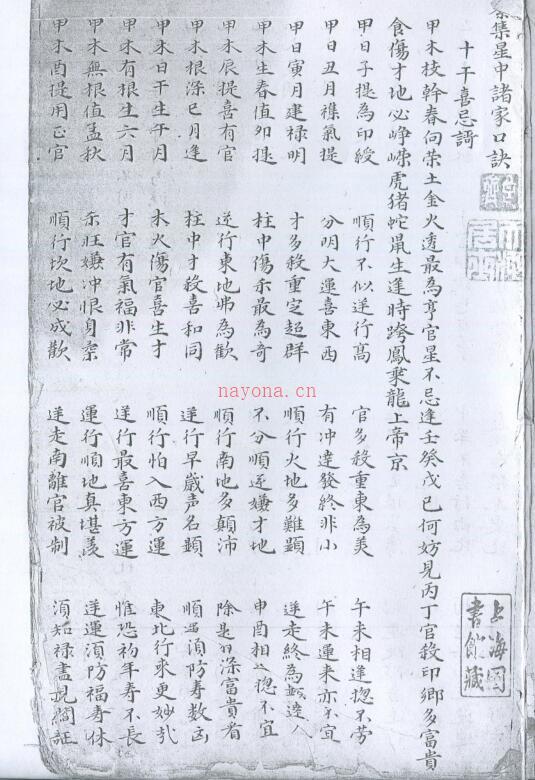 集星中諸家口訣
十干喜忌詩
甲木枝幹春向榮土金火透最為亨官星不忌逢壬癸戊己何妨見丙丁官殺印卿多富貴
食傷才地必崢嶸虎猪蛇鼠生逢時跨鳳乘龍上帝京
甲日子提為印綬 順行不似逆行髙 官多殺重東為美 午未相逢揔不劳
甲日丑月襍氣提 分明大運喜東西 有冲達發終非小 午未運来亦不宜
甲日寅月建禄明 才多殺重定超群 順行火地多難顕 逆走終為
甲木生春值夘提 柱中傷未最為奇 不分順逆嫌才地 申酉相 揔不宜
甲木辰提喜有官 逆行東地弗為歡 順行南地多顛沛 除 深富貴看
甲木根深巳月逢 柱中才殺喜和同 逆行早歲声名顕 順 須防寿数凶
甲木日干生午月 木火傷官喜生才 順行怕入西方運 東北行來更妙哉
甲木有根生六月 才官有氣福非常 逆行最喜東方運 惟恐初年寿不長
甲木無根值孟秋 旺嫌冲恨身柔 運行順地真堪羡 逆運須防福寿休
甲木酉提用正官 順行坎地必成歡 逆走南離官被制 須知禄盡見閻
上海圖書館藏
nayona.cn